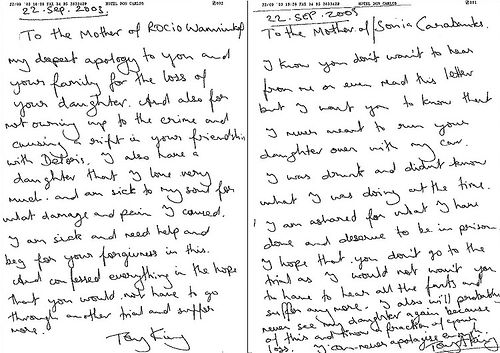 22/09 '03 19:38 FAX 34 95 2833429 HOTEL DON CARLOS
22. SEP. 2003
To the Mother of ROCIO Wanninkhof
my deepest apology to you and
your family for the loss of
your daughter. And also for
not owning up to the crime and
causing a rift in your friendship
with Deloris. I also have a
daughter that I love very
much. and am sick to my soul for
what damage and pain I caused.
I am sick and need help and
beg for your forgivness in this.
And confessed everything in the hope
that you would not have to go
through another trial and suffer
more.
Tony King
HOTEL DON CARLOS
22. SEP. 2003
To the Mother of Sonia Carabantes.
I know you don't want to hear
from me or even read this letter
but I want you to know that
I never meant to run your
daughter over with my car.
I was drunk and didn't know
what I was doing at the time.
I am ashared for what I have
done and deserve to be in prison
I hope that you don't go to the
trial as I would not want you
to have to hear all the facts and
suffer any more. I also will probably
never see my daughter again because
of this and know a fraction of your
loss. I can never apologise enough.
Tony King